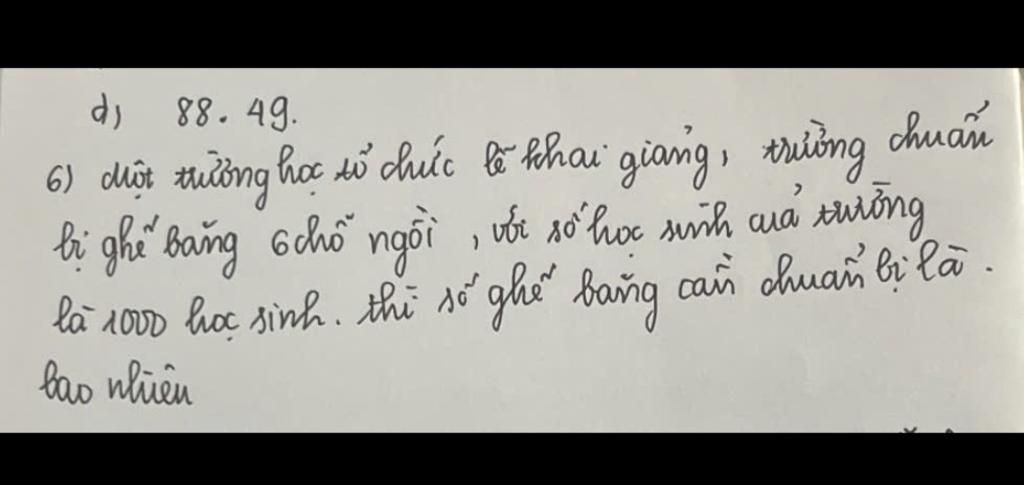 d) 88. 49.
6) Một trường học tổ chức lễ khai giảng, trường chuẩn
bị ghế băng 6 chỗ ngồi, với số học sinh của trường
là 1000 học sinh. thì số ghế băng cần chuẩn bị là.
bao nhiêu